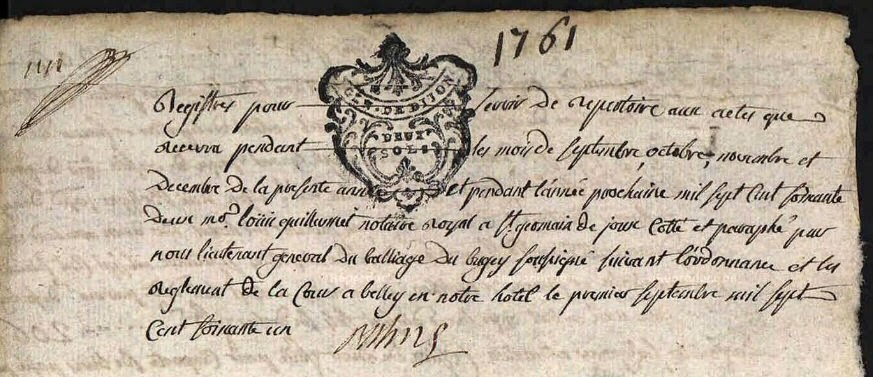 1761
GEN. DE DIJON
DEUX
SOLS
Registres pour servir de repertoire aux actes que
recevra pendant les mois de septembre, octobre, novembre et
decembre de la presente anné et pendant l'année prochaine mil sept cent soixante
deux me. Louis quillermet notaire royal a st. germain de joux cotte et paraphé par
nous lieutenant general du balliage du bugey soussigné suivant l'ordonnance et les
reglement de la cour a belley en notre hotel le premier septembre mil sept
cent soixante un